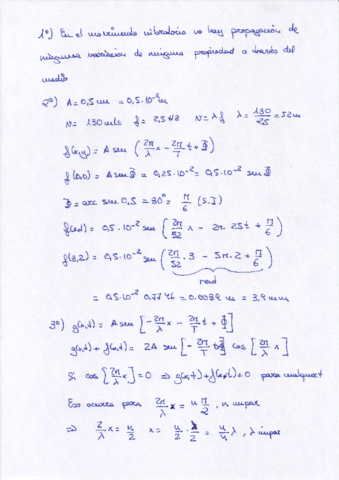 1º) En el movimiento vibratorio no hay propagación de
ninguna variación de ninguna propiedad a través del
medio
2º) A = 0,5 cm = 0,5·10⁻² m
v = 130 m/s f = 2,5 Hz v = λf λ = 130/2,5 = 52 m
f(x,y) = A sen (2π/λ x - 2π/T t + Φ)
f(0,0) = A sen Φ = 0,25·10⁻² = 0,5·10⁻² sen Φ
Φ = arc sen 0,5 = 30º = π/6 (S.I)
f(x,t) = 0,5·10⁻² sen (2π/52 x - 2π·2,5 t + π/6)
f(3,2) = 0,5·10⁻² sen (2π/52 · 3 - 5π·2 + π/6)
rad
= 0,5·10⁻² 0,7776 = 0.0039 m = 3,9 mm
3º) g(x,t) = A sen [-2π/λ x - 2π/T t + Φ]
g(x,t) + f(x,t) = 2A sen [-2π/T t + Φ] cos [2π/λ x]
Si cos [2π/λ x] = 0 ⇒ g(x,t) + f(x,t) = 0 para cualquier t
Eso ocurre para 2π/λ x = n π/2, n impar
⇒ 2/λ x = n/2 x = n/2 · λ/2 = n/4 λ, impar